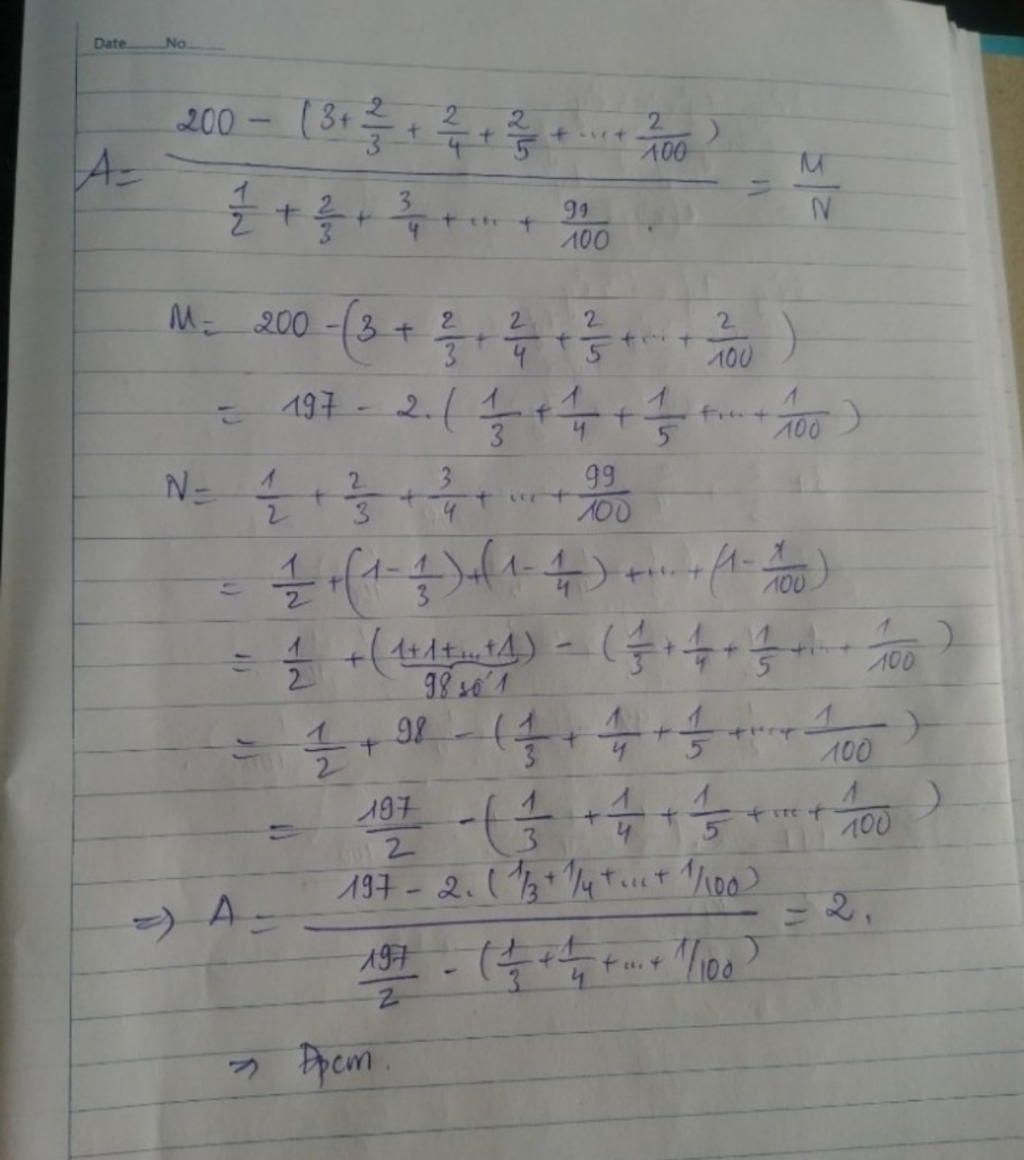 Date No
A = (200 - (3 + 2/3 + 2/4 + 2/5 + ... + 2/100)) / (1/2 + 2/3 + 3/4 + ... + 99/100) = M/N
M = 200 - (3 + 2/3 + 2/4 + 2/5 + ... + 2/100)
= 197 - 2.(1/3 + 1/4 + 1/5 + ... + 1/100)
N = 1/2 + 2/3 + 3/4 + ... + 99/100
= 1/2 + (1 - 1/3) + (1 - 1/4) + ... + (1 - 1/100)
= 1/2 + (1+1+...+1) - (1/3 + 1/4 + 1/5 + ... + 1/100)
98 số 1
= 1/2 + 98 - (1/3 + 1/4 + 1/5 + ... + 1/100)
= 197/2 - (1/3 + 1/4 + 1/5 + ... + 1/100)
=> A = (197 - 2.(1/3 + 1/4 + ... + 1/100)) / (197/2 - (1/3 + 1/4 + ... + 1/100)) = 2.
=> Đpcm.